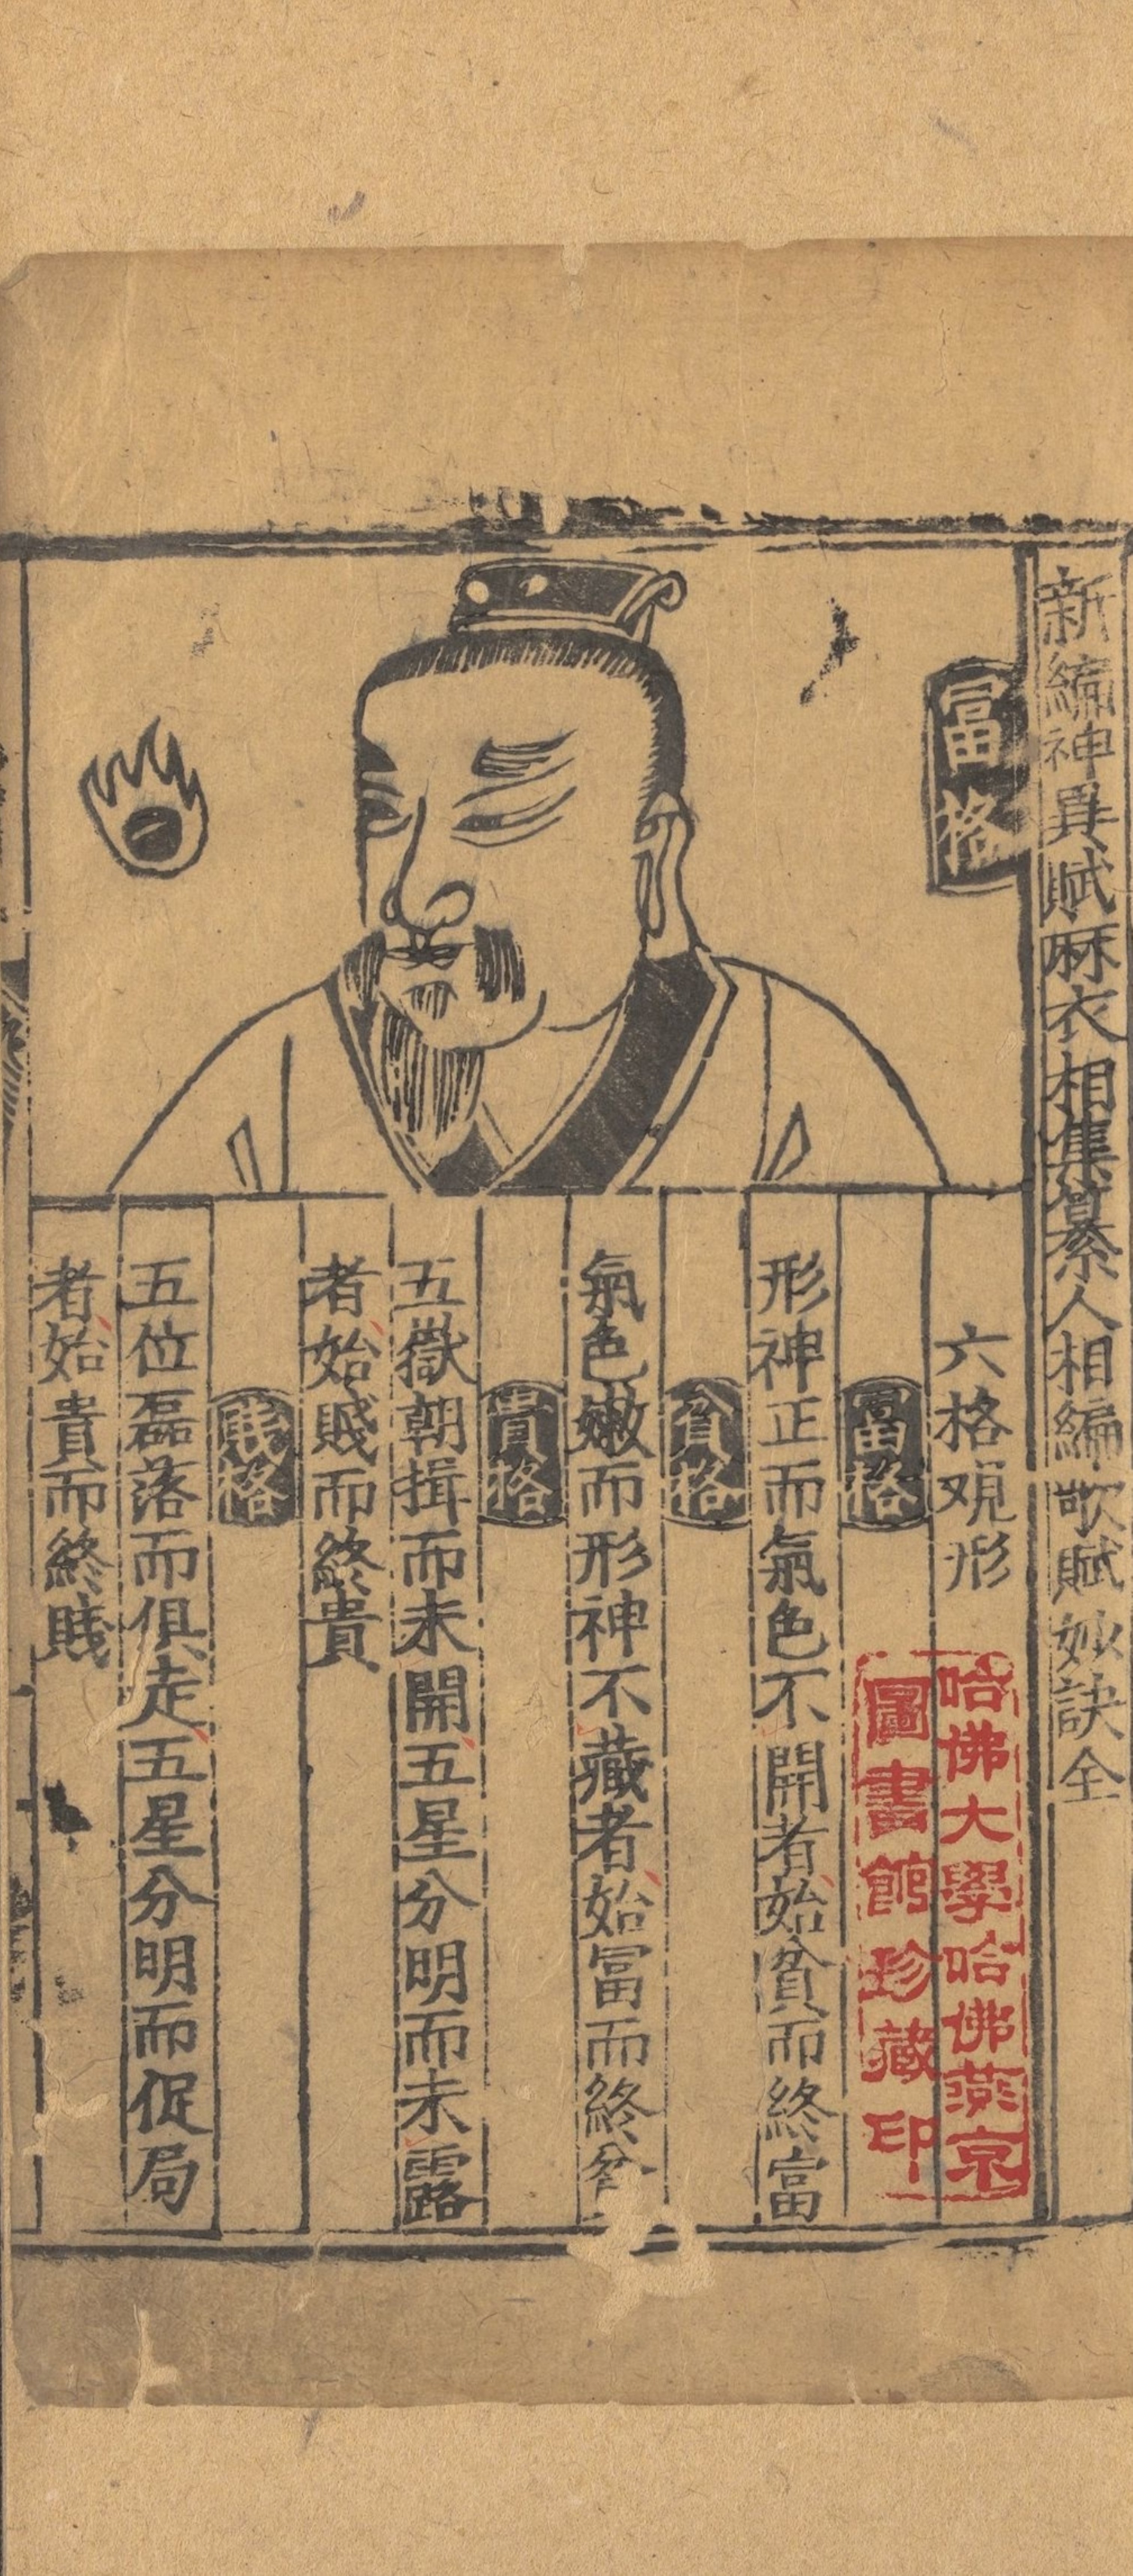 新編神異賦麻衣相集纂人相編歌賦妙訣全
冨格
六格观形
哈佛大學哈佛燕京
圖書館珍藏印
冨格
形神正而氣色不開者始貧而終富
貧格
氣色嫩而形神不藏者始冨而終
貴格
五嶽朝揖而未開五星分明而未露
者始賤而終貴
賤格
五位磊落而俱走五星分明而促局
者始貴而終賤